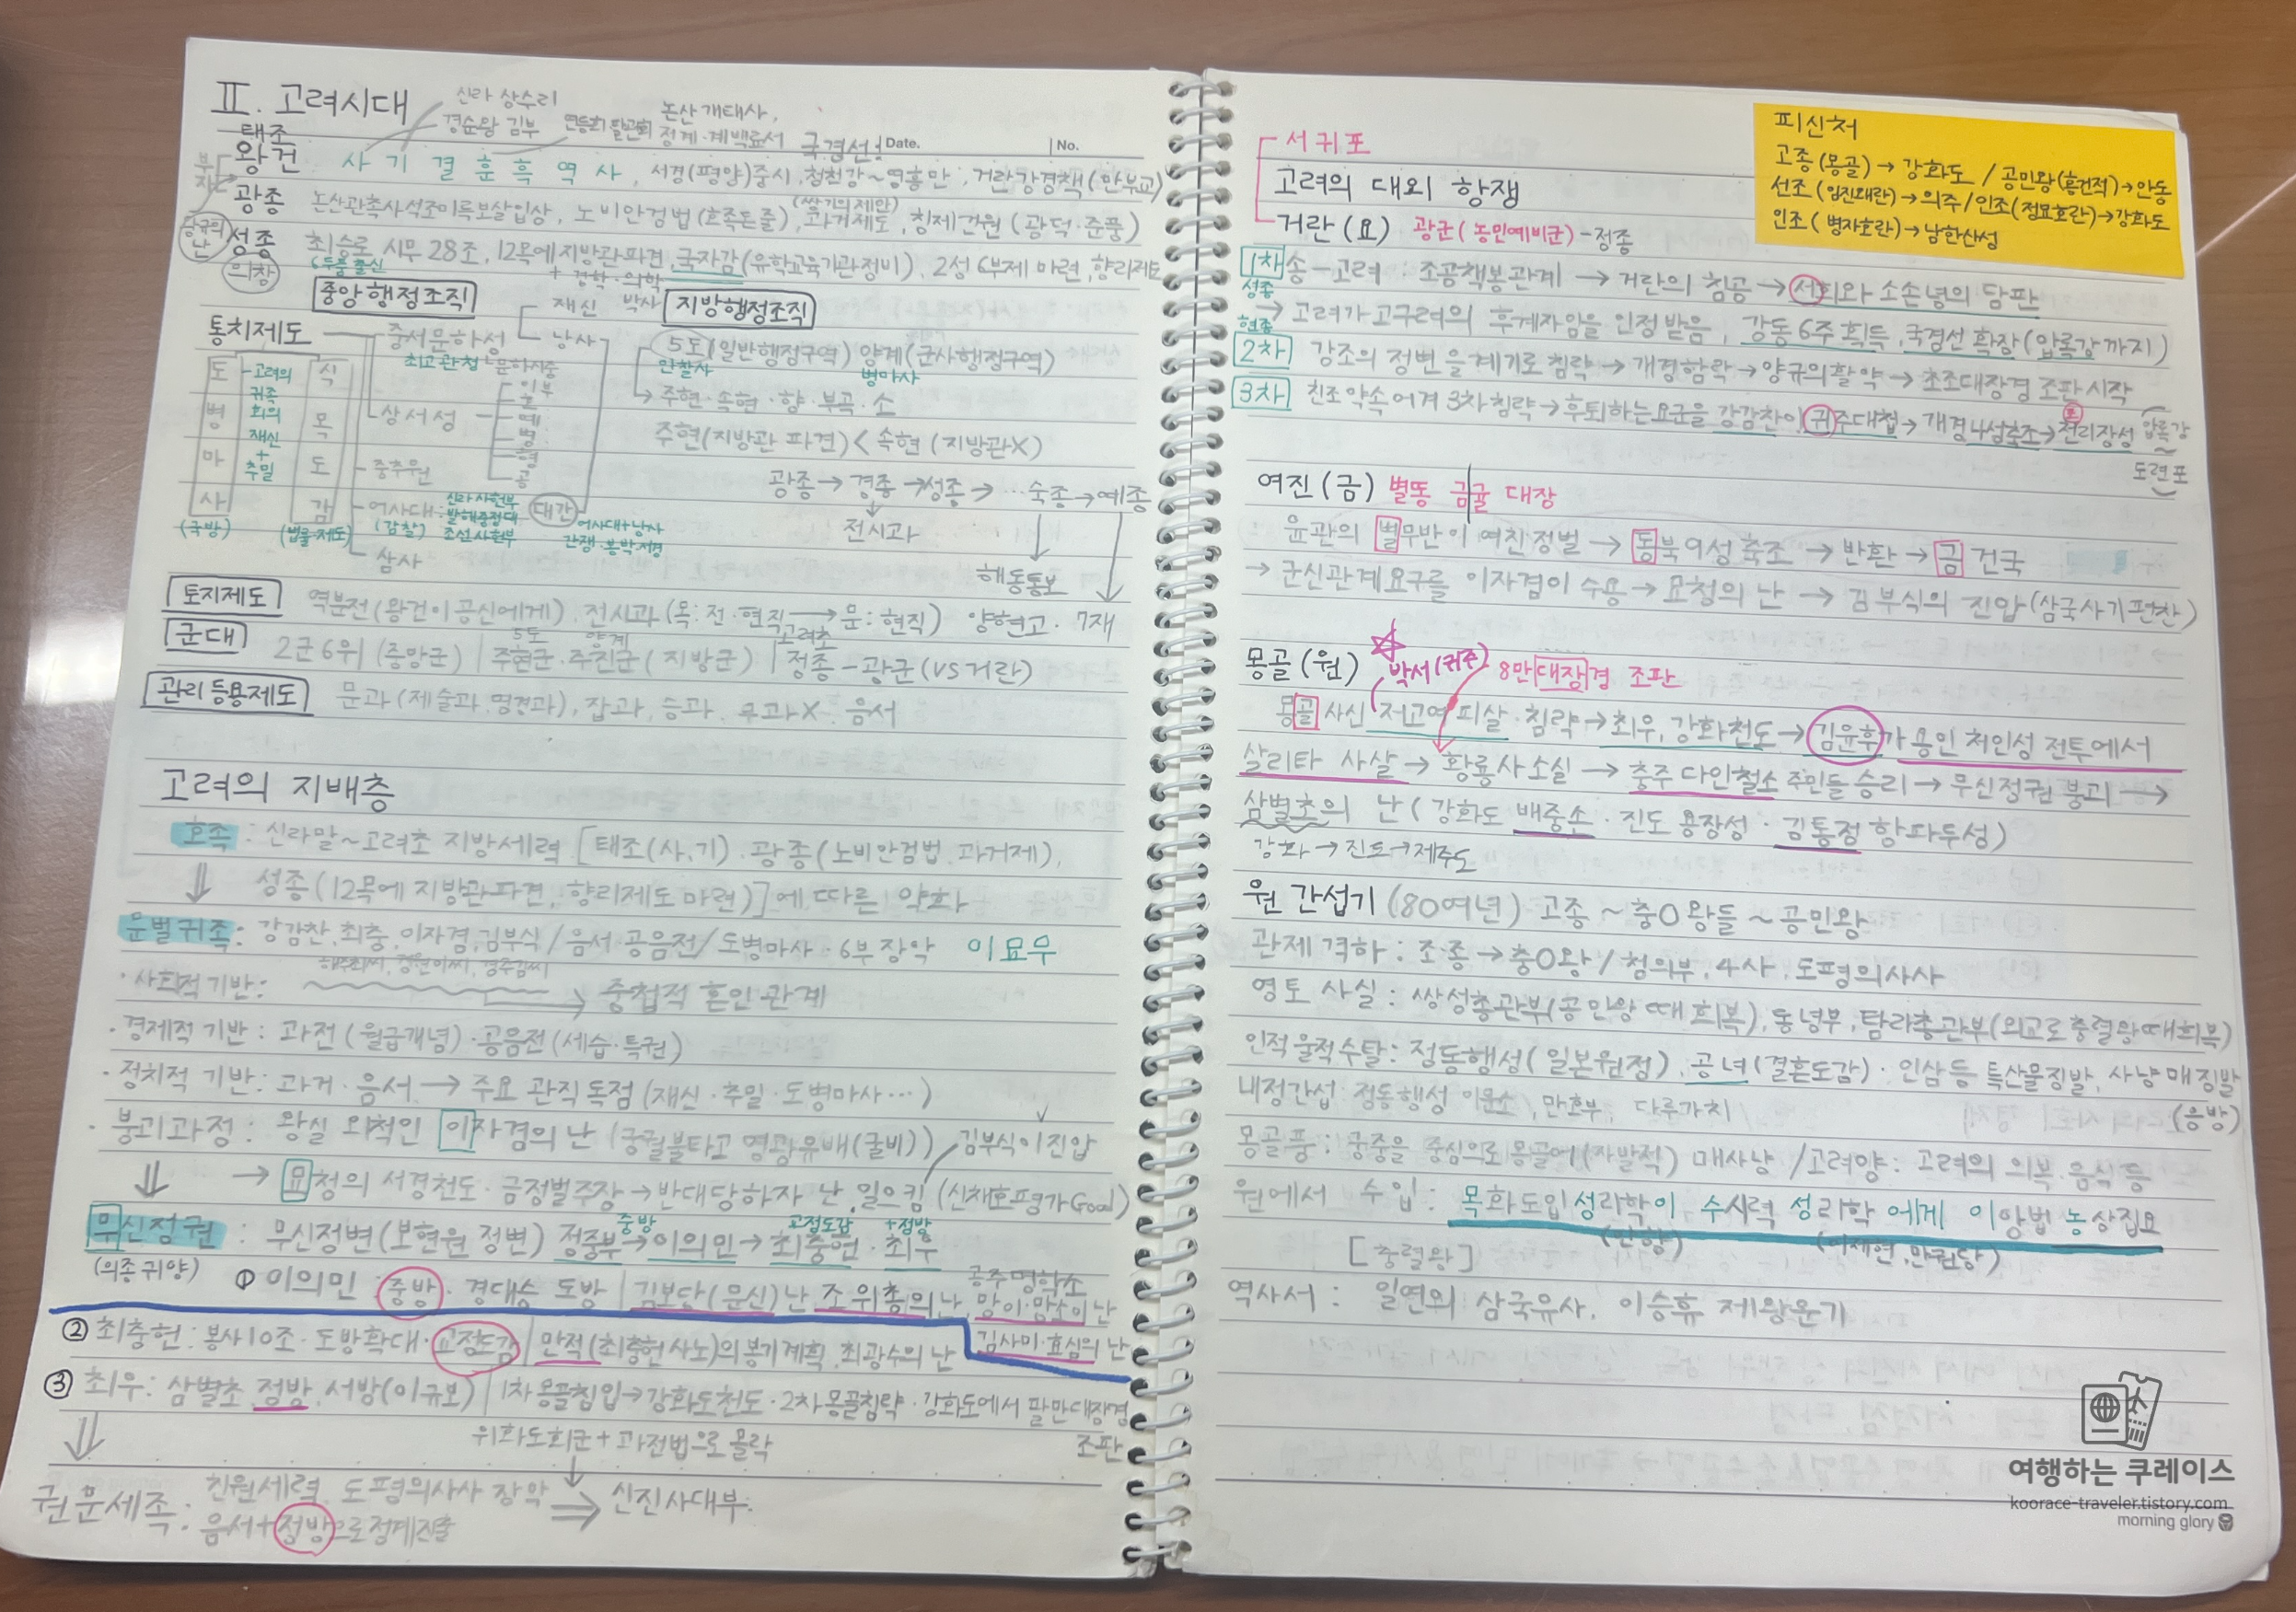 II. 고려시대
신라 상수리
경순왕 김부
연등회 팔관회
논산 개태사,
정계·계백료서
국경선!
Date.
No.
태조
왕건
사 기 결 훈 흑 역 사, 서경(평양)중시, 청천강~영흥만, 거란강경책(만부교)
광종 논산관촉사석조미륵보살입상, 노비안검법(호족돈줄), 과거제도, 칭제건원(광덕·준풍)
(쌍기의제안)
왕규의 난
성종 최승로 시무 28조, 12목에지방관파견, 국자감(유학교육기관정비), 2성6부제 마련, 향리제도
6두품출신
+ 경학·의학
박사
의창
중앙행정조직
지방행정조직
통치제도
중서문하성
재신
낭사
최고관청
문하시중
상서성
이부
호
예
병
형
공
중추원
어사대
(감찰)
신라 사헌부
발해 중정대
조선 사헌부
대간
어사대+낭사
간쟁·봉박·서경
삼사
도병마사
(국방)
고려의 귀족 회의
재신
+
추밀
식목도감
(법률·제도)
5도(일반행정구역) 양계(군사행정구역)
안찰사
병마사
주현·속현·향·부곡·소
주현(지방관 파견) < 속현(지방관X)
광종→경종→성종→…숙종→예종
전시과
해동통보
양현고·7재
토지제도 역분전(왕건이공신에게), 전시과(목: 전·현직→문: 현직)
군대 2군6위(중앙군) | 주현군·주진군(지방군) | 정종-광군(VS거란)
5도
양계
고려초
관리등용제도 문과(제술과, 명경과), 잡과, 승과, 무과X, 음서
고려의 지배층
호족: 신라말~고려초 지방세력 [태조(사,기)·광종(노비안검법, 과거제),
성종(12목에 지방관파견, 향리제도 마련)]에 따른 약화
문벌귀족: 강감찬, 최충, 이자겸, 김부식 / 음서·공음전/도병마사·6부장악 이묘무
해주최씨, 경원이씨, 경주김씨
·사회적 기반: 중첩적 혼인 관계
·경제적 기반: 과전(월급개념)·공음전(세습·특권)
·정치적 기반: 과거·음서→주요 관직독점(재신·추밀·도병마사…)
·붕괴과정: 왕실 외척인 이자겸의 난(궁궐불타고 영광유배(굴비)) 김부식이진압
→ 묘청의 서경천도·금정벌주장→반대당하자 난 일으킴(신채호평가Good)
무신정권: 무신정변(보현원 정변) 정중부→이의민→최충헌·최우
중방
교정도감
+정방
(의종귀양)
① 이의민: 중방·경대승 도방 | 김보단(문신)난, 조위총의난, 망이·망소이난
공주명학소
김사미·효심의 난
② 최충헌: 봉사10조·도방확대·교정도감 | 만적(최충헌사노)의봉기계획, 최광수의 난
③ 최우: 삼별초, 정방, 서방(이규보) | 1차몽골침입→강화도천도·2차몽골침략·강화도에서 팔만대장경
조판
위화도회군+과전법으로 몰락
권문세족: 친원세력, 도평의사사 장악
음서+정방으로정계진출
신진사대부:
서귀포
고려의 대외 항쟁
거란(요) 광군(농민예비군)-정종
피신처
고종(몽골)→강화도 / 공민왕(홍건적)→안동
선조(임진왜란)→의주/인조(정묘호란)→강화도
인조(병자호란)→남한산성
1차 송-고려: 조공책봉관계→거란의 침공→서희와 소손녕의 담판
성종
→고려가고구려의 후계자임을 인정받음, 강동6주획득, 국경선 확장(압록강까지)
현종
2차 강조의 정변을계기로침략→개경함락→양규의활약→초조대장경 조판시작
3차 친조약속어겨 3차침략→후퇴하는요군을 강감찬이 귀주대첩→개경나성축조→천리장성
압록강
~
도련포
여진(금) 별똥 금귤 대장
윤관의 별무반이 여진정벌→동북9성축조→반환→금 건국
→군신관계요구를 이자겸이 수용→묘청의 난→김부식의 진압(삼국사기편찬)
몽골(원) 박서(귀주) 8만대장경 조판
몽골사신 저고여피살·침략→최우, 강화천도→김윤후가 용인 처인성 전투에서
살리타 사살→황룡사소실→충주 다인철소주민들승리→무신정권 붕괴→
삼별초의 난(강화도 배중손·진도 용장성·김통정 항파두성)
강화→진도→제주도
원 간섭기(80여년) 고종~충O왕들~공민왕
관제격하: 조·종→충O왕/첨의부, 4사, 도평의사사
영토 사실: 쌍성총관부(공민왕때회복), 동녕부, 탐라총관부(외교로충렬왕때회복)
인적물적수탈: 정동행성(일본원정), 공녀(결혼도감)·인삼등 특산물징발, 사냥매징발
(응방)
내정간섭·정동행성 이문소, 만호부, 다루가치
몽골풍: 궁중을 중심으로 몽골어(자발적) 매사냥/고려양: 고려의 의복·음식등
원에서 수입: 목화도입성리학이 수시력 성리학 에게 이앙법 농상집요
(안향)
(이제현, 만권당)
[충렬왕]
역사서: 일연의 삼국유사, 이승휴 제왕운기
여행하는 쿠레이스
koorace-traveler.tistory.com
morning glory